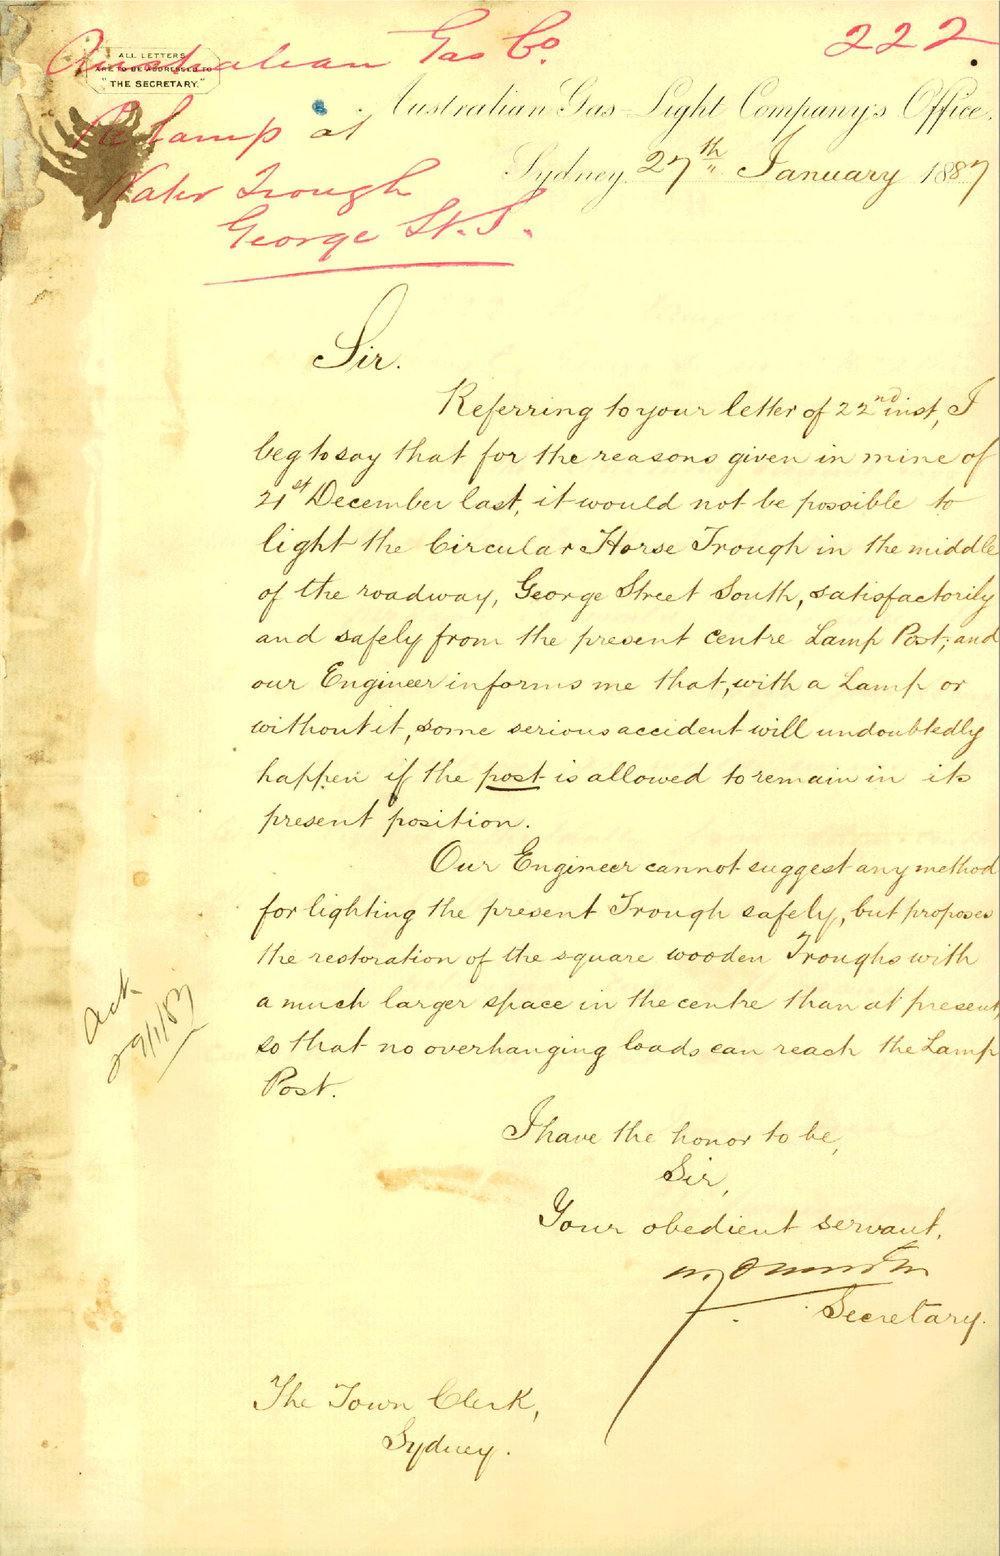 Australian Gas Co. 222
ALL LETTERS
ARE TO BE ADDRESSED TO
"THE SECRETARY."
Australian Gas-Light Company's Office.
Re Lamp at
Sydney 27th January 1887
Water Trough
George St. S.
Sir.
Referring to your letter of 22nd inst, I
beg to say that for the reasons given in mine of
21st December last, it would not be possible to
light the Circular Horse Trough in the middle
of the roadway, George Street South, satisfactorily
and safely from the present centre Lamp Post; and
our Engineer informs me that, with a Lamp or
without it, some serious accident will undoubtedly
happen if the post is allowed to remain in its
present position.
Our Engineer cannot suggest any method
for lighting the present Trough safely, but proposes
the restoration of the square wooden Troughs with
a much larger space in the centre than at present,
so that no overhanging loads can reach the Lamp
Post.
Ack
29/1/87
I have the honor to be,
Sir,
Your obedient servant,
Secretary.
The Town Clerk,
Sydney.